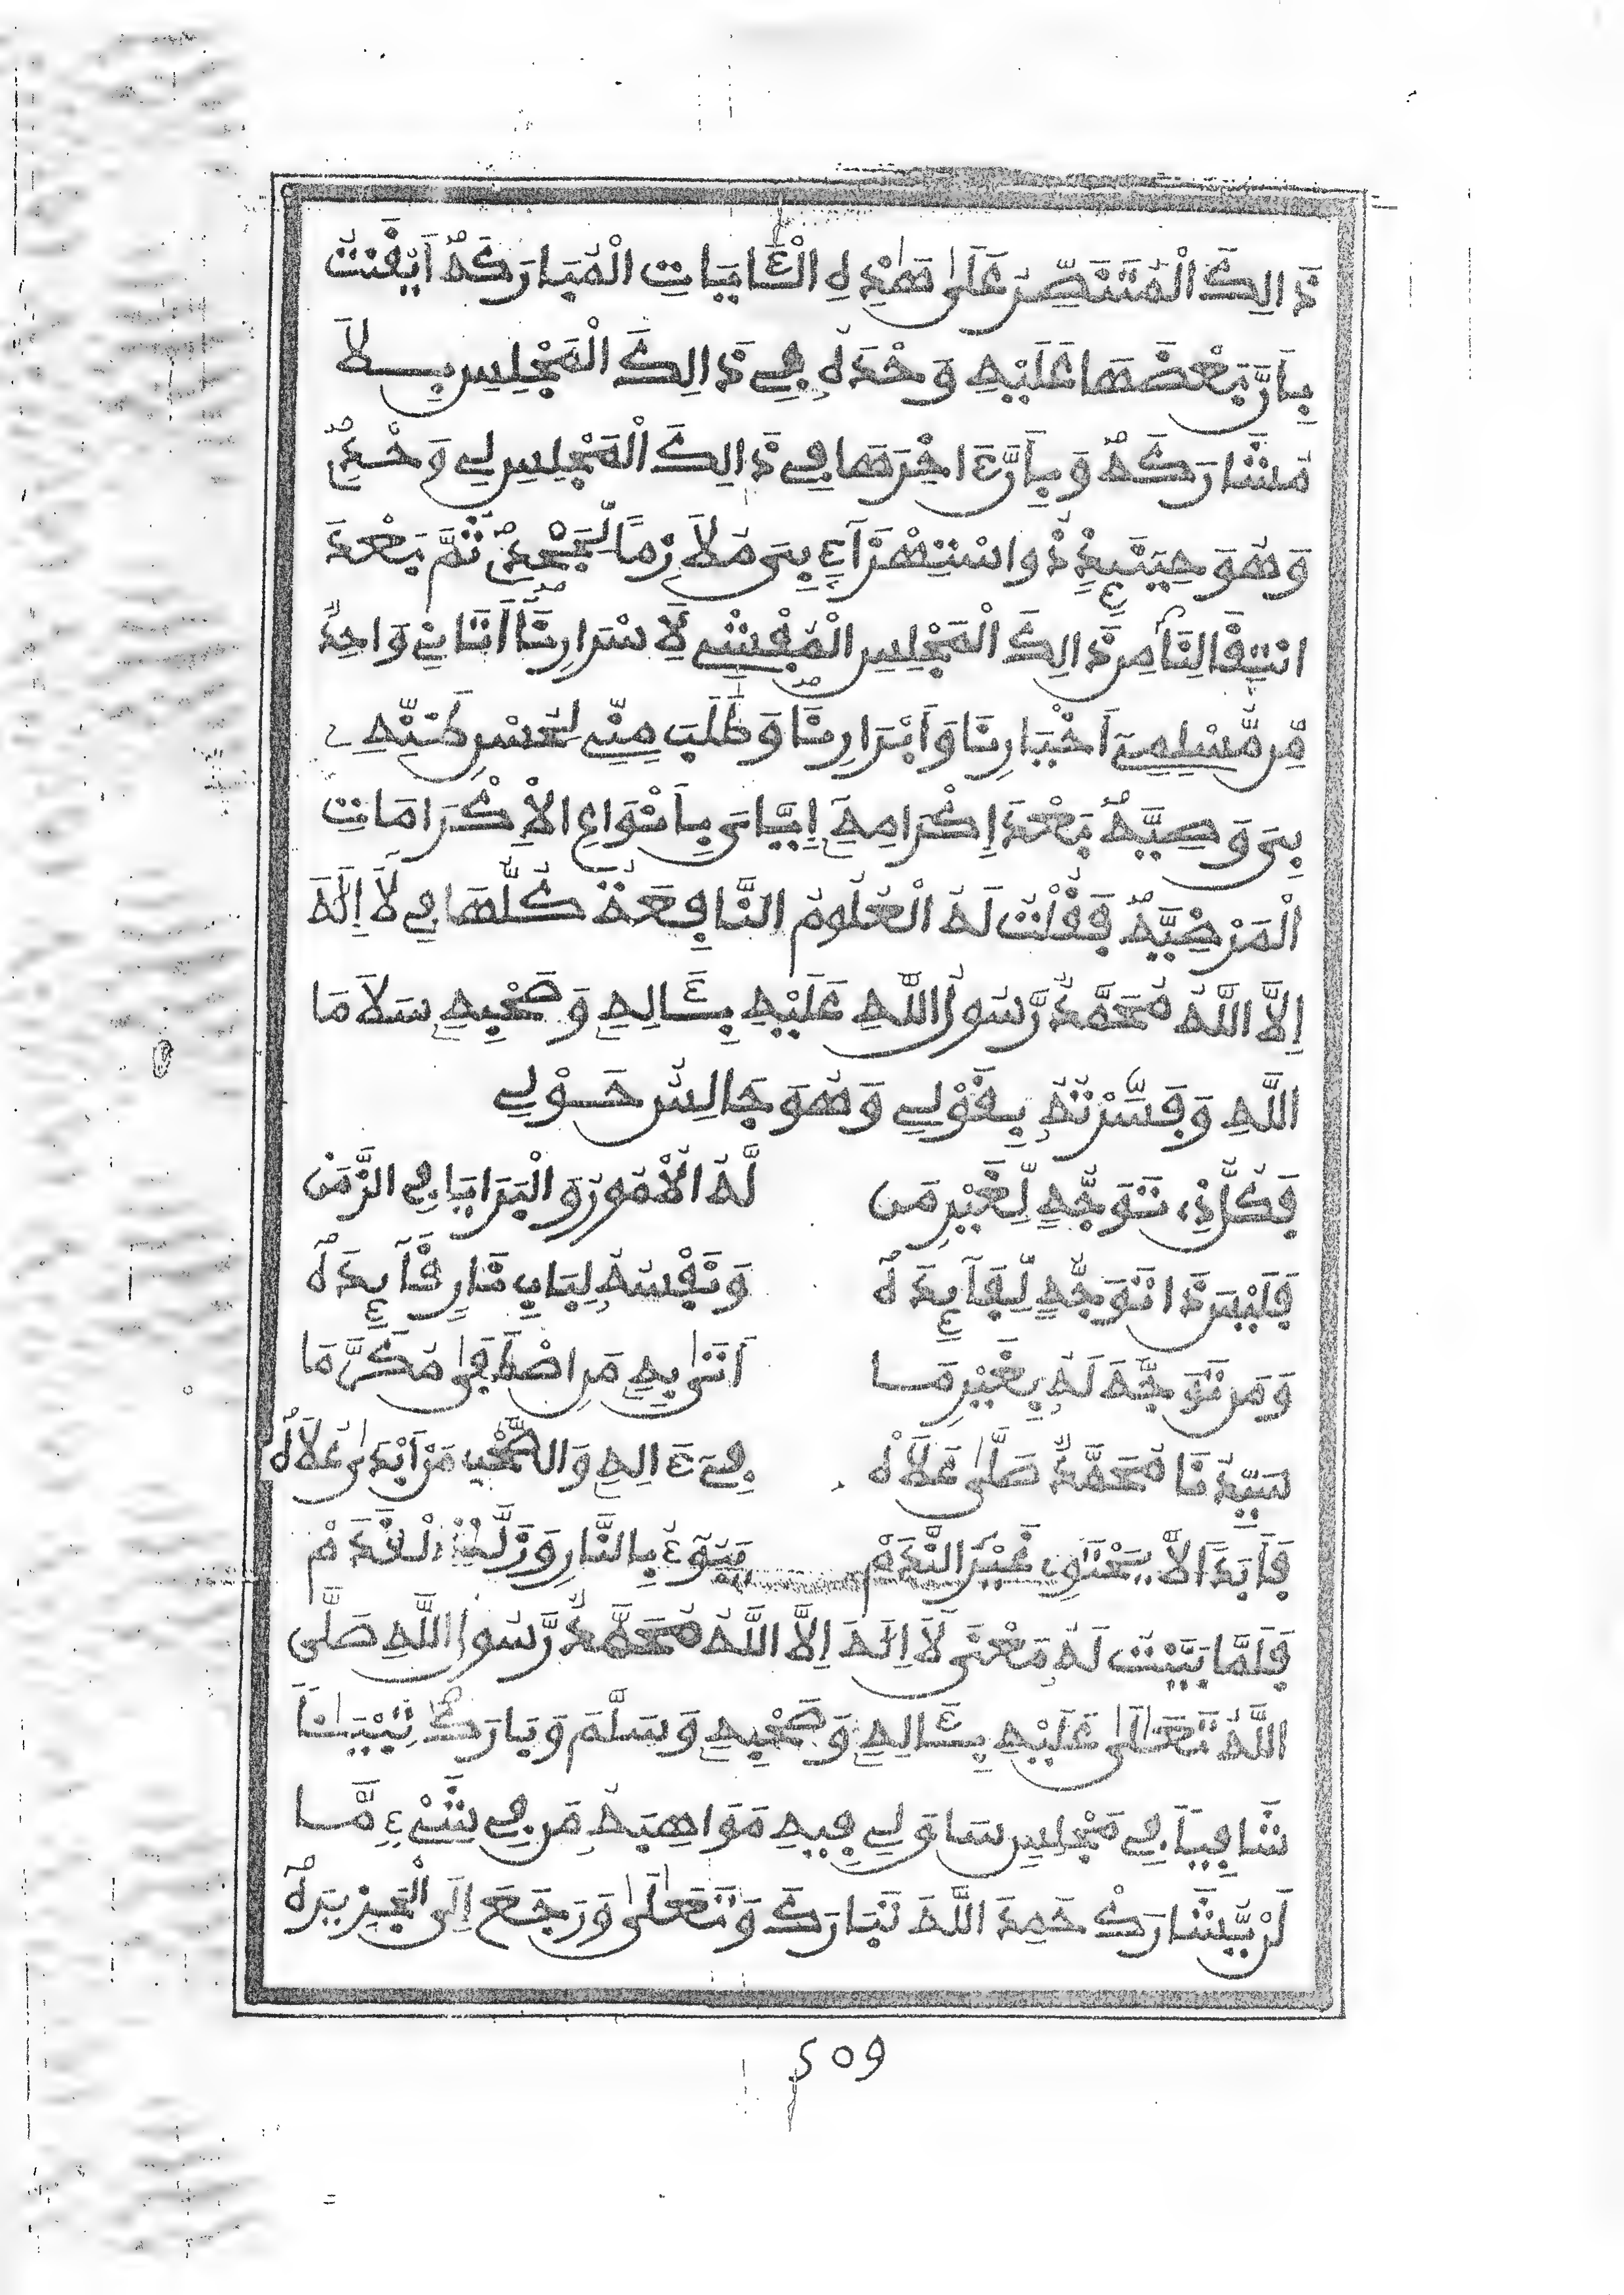 ذَالِكَ الْمُتَنَصِّرُ عَلَىٰ هَٰذِهِ الْـَٔايَاتِ الْمُبَارَكَةِ أَيْقَنْتُ
بِأَنَّ بَعْضَهَا عَلَيْهِ وَحْدَهُ فِي ذَالِكَ الْمَجْلِسِ بِــلَا
مُشَارَكَةٍ وَبِأَنَّ ءَاخِرَهَا فِي ذَالِكَ الْمَجْلِسِ لِي وَحْدِي
وَهُوَ حِينَئِذٍ ذُو اسْتِهْزَآءٍ بِي مُلَازِمًا لِّجَحْدِي ثُمَّ بَعْدَ
انْتِقَالِنَا مِن ذَالِكَ الْمَجْلِسِ الْمُفْشِي لِأَسْرَارِنَا أَتَانِي وَاحِدٌ
مِّن مُّسْلِمِي أَخْيَارِنَا وَأَبْرَارِنَا وَطَلَبَ مِنِّي لِحُسْنِ ظَنِّهِ
بِي وَصِيَّةً بَعْدَ إِكْرَامِهِ إِيَّايَ بِأَنْوَاعِ الْإِكْرَامَاتِ
الْمَرْضِيَّةِ فَقُلْتُ لَهُ الْعُلُومُ النَّافِعَةُ كُلُّهَا فِي لَا إِلَٰهَ
إِلَّا اللَّهُ مُحَمَّدٌ رَّسُولُ اللَّهِ عَلَيْهِ بِـَٔالِهِ وَصَحْبِهِ سَلَامَا
اللَّهِ وَفَسَّرْتُهُ بِقَوْلِي وَهُوَ جَالِسٌ حَــوْلِي
فَكُلُّ ذِي تَوَجُّهٍ لِّغَيْرِ مَن لَّهُ الْأُمُورُ وَالْبَرَايَا فِي الزَّمَنْ
فَلَيْسَ ذَا تَوَجُّهٍ لِّفَآئِدَهْ وَنَفْسُهُ لِبَابِ نَارٍ قَآئِدَهْ
وَمَن تَوَجَّهَ لَهُ بِغَيْرِ مَــا أَتَىٰ بِهِ مَنِ اصْطَفَىٰ مُكَرَّمَا
سَيِّدُنَا مُحَمَّدٌ صَلَّىٰ عَلَاهْ فِي ءَالِهِ وَالصَّحْبِ مَنْ أَبْدَىٰ عُلَاهْ
فَأَبَدًا لَّا يَحْتَوِي غَيْرَ النَّدَمْ يَبُوٓءُ بِالنَّارِ وَزَلَّةِ الْقَدَمْ
فَلَمَّا بَيَّنْتُ لَهُ مَعْنَى لَا إِلَٰهَ إِلَّا اللَّهُ مُحَمَّدٌ رَّسُولُ اللَّهِ صَلَّى
اللَّهُ تَعَالَىٰ عَلَيْهِ بِـَٔالِهِ وَصَحْبِهِ وَسَلَّمَ وَبَارَكَ تِبْيَانًا
شَافِيًا فِي مَجْلِسٍ سَاقَ لِي فِيهِ مَوَاهِبَهُ مَن فِي شَيْءٍ مَّــا
لَن يُّشَارَكْ حَمِدَ اللَّهَ تَبَارَكَ وَتَعَالَىٰ وَرَجَعَ إِلَى الْجَزِيرَهْ
509